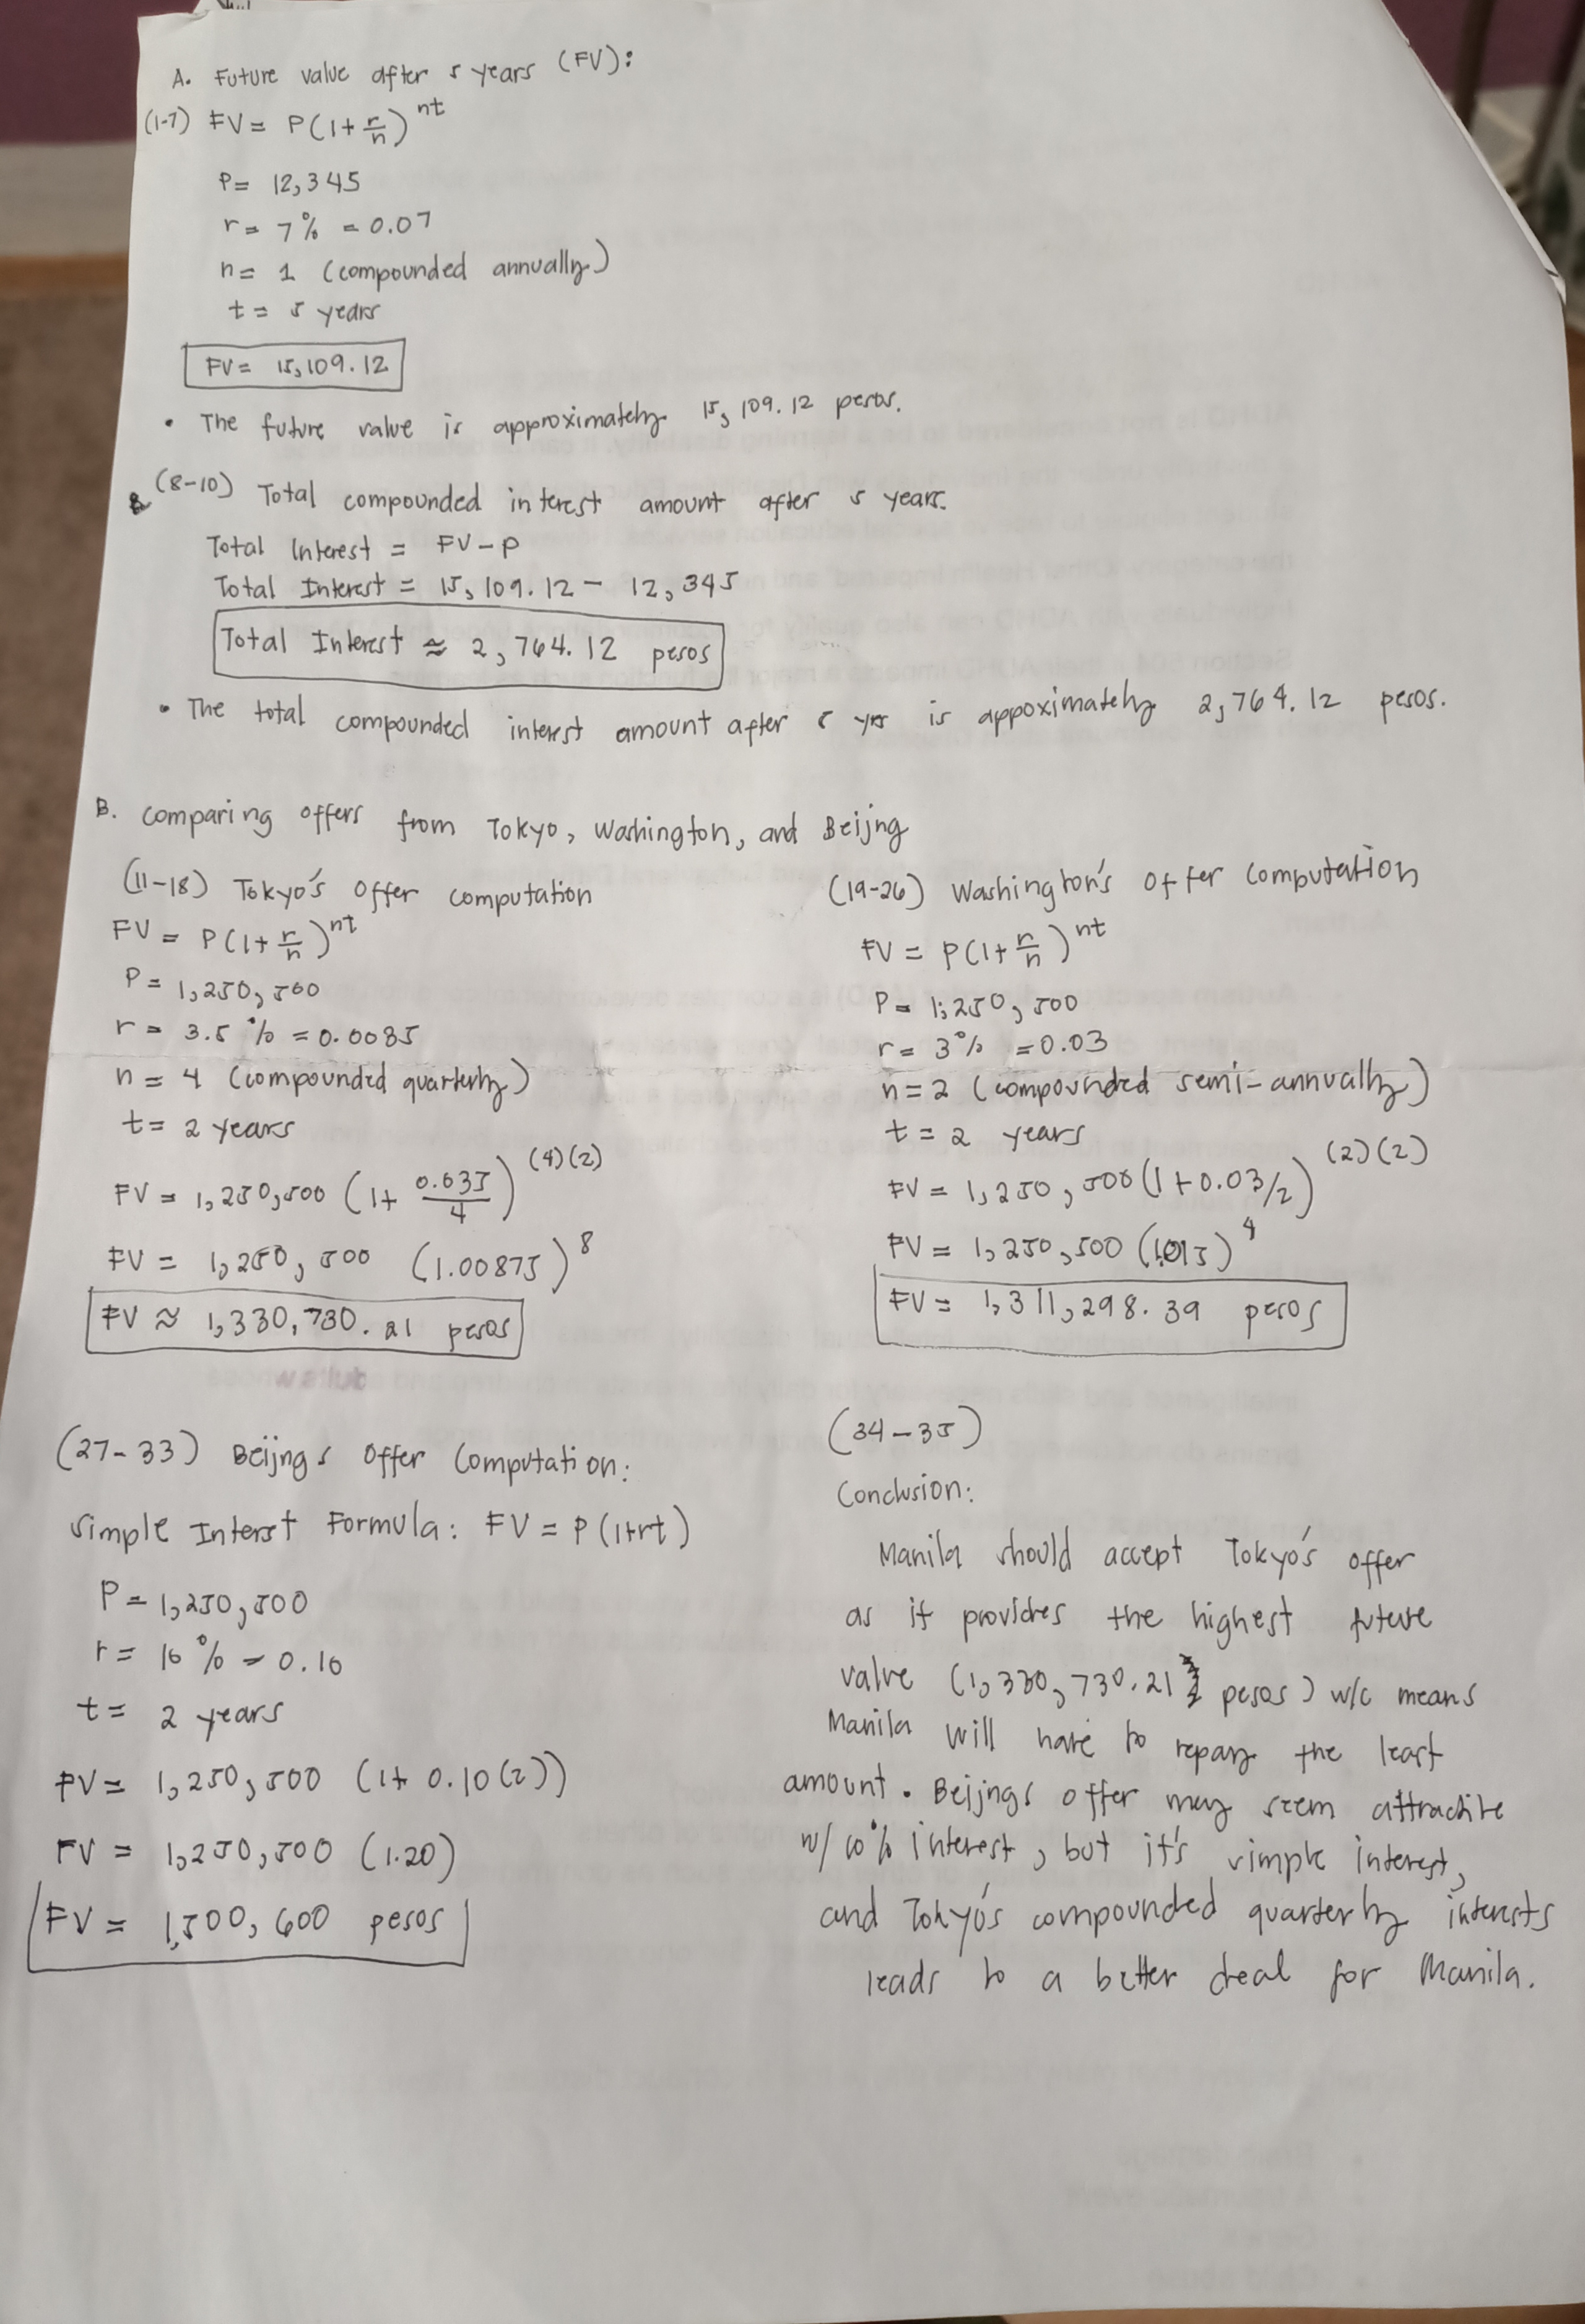 A. Future value after 5 years (FV):
(1-7) FV = P(1+ r/n)^nt
P= 12,345
r= 7% = 0.07
n= 1 (compounded annually)
t= 5 years
FV= 15,109.12
• The future value is approximately 15,109.12 pesos.
(8-10) Total compounded interest amount after 5 years.
Total Interest = FV-P
Total Interest = 15,109.12 - 12,345
Total Interest ≈ 2,764.12 pesos
• The total compounded interest amount after 5 yrs is appoximately 2,764.12 pesos.
B. Comparing offers from Tokyo, Washington, and Beijng
(11-18) Tokyo's Offer computation
FV = P(1+ r/n)^nt
P = 1,250,500
r = 3.5 % = 0.0035
n = 4 (compounded quarterly)
t= 2 years
FV = 1,250,500 (1+ 0.035/4)^(4)(2)
FV = 1,250,500 (1.00875)^8
FV ≈ 1,330,730.21 pesos
(19-26) Washington's Offer Computation
FV = P(1+ r/n)^nt
P = 1,250,500
r= 3% =0.03
n=2 (compounded semi-annually)
t = 2 years
FV = 1,250,500 (1+0.03/2)^(2)(2)
FV = 1,250,500 (1.015)^4
FV = 1,311,298.39 pesos
(27-33) Beijngs Offer Computation:
Simple Interst Formula: FV = P(1+rt)
P = 1,250,500
r = 10 % = 0.10
t= 2 years
FV = 1,250,500 (1+ 0.10(2))
FV = 1,250,500 (1.20)
FV = 1,500,600 pesos
(34-35)
Conclusion:
Manila should accept Tokyo's offer
as it provides the highest future
value (1,330,730.21 pesos) w/c means
Manila will have to repay the least
amount. Beijngs offer may seem attractive
w/ 10% interest, but it's simple interest,
and Tokyo's compounded quarterly interests
leads to a better deal for Manila.